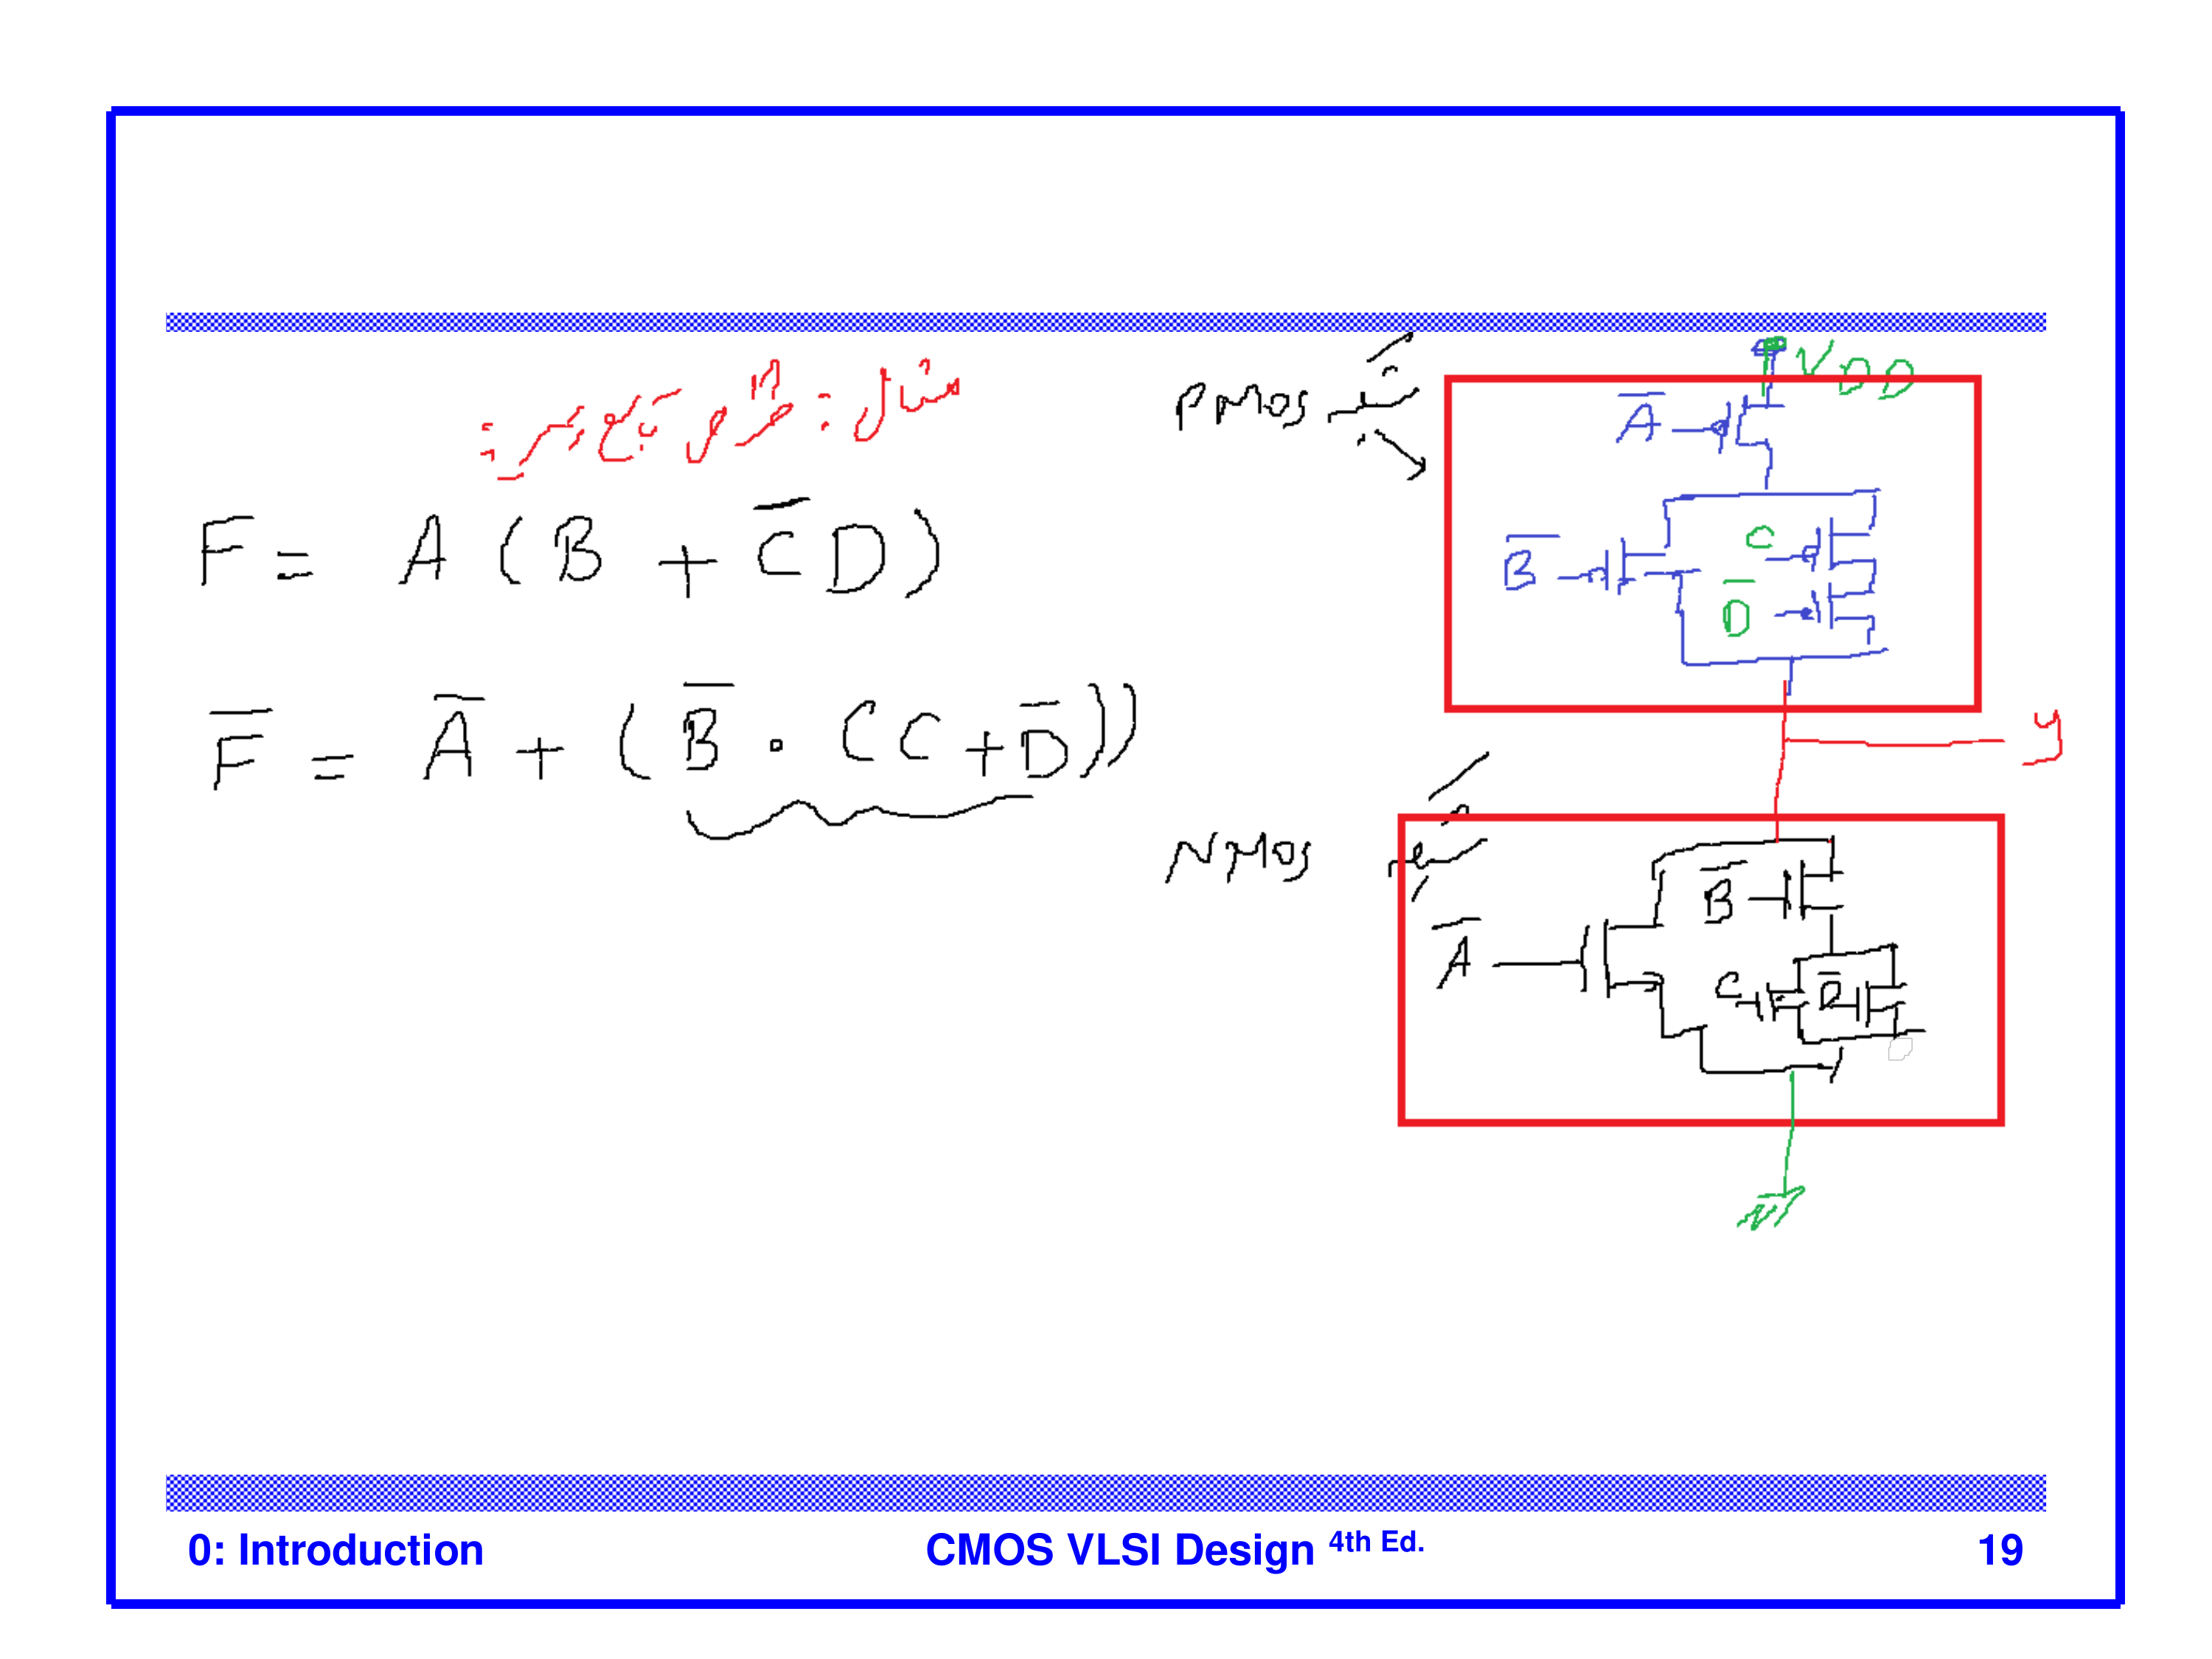 مثال : فرض تابع زیر :
F = A ( B + C̅ D )
F̅ = A̅ + ( B̅ . ( C + D̅ ) )
PMOS شبکه
VDD
A̅
B̅
C
D̅
y
NMOS شبکه
A̅
B̅
C
D̅
0: Introduction
CMOS VLSI Design 4th Ed.
19